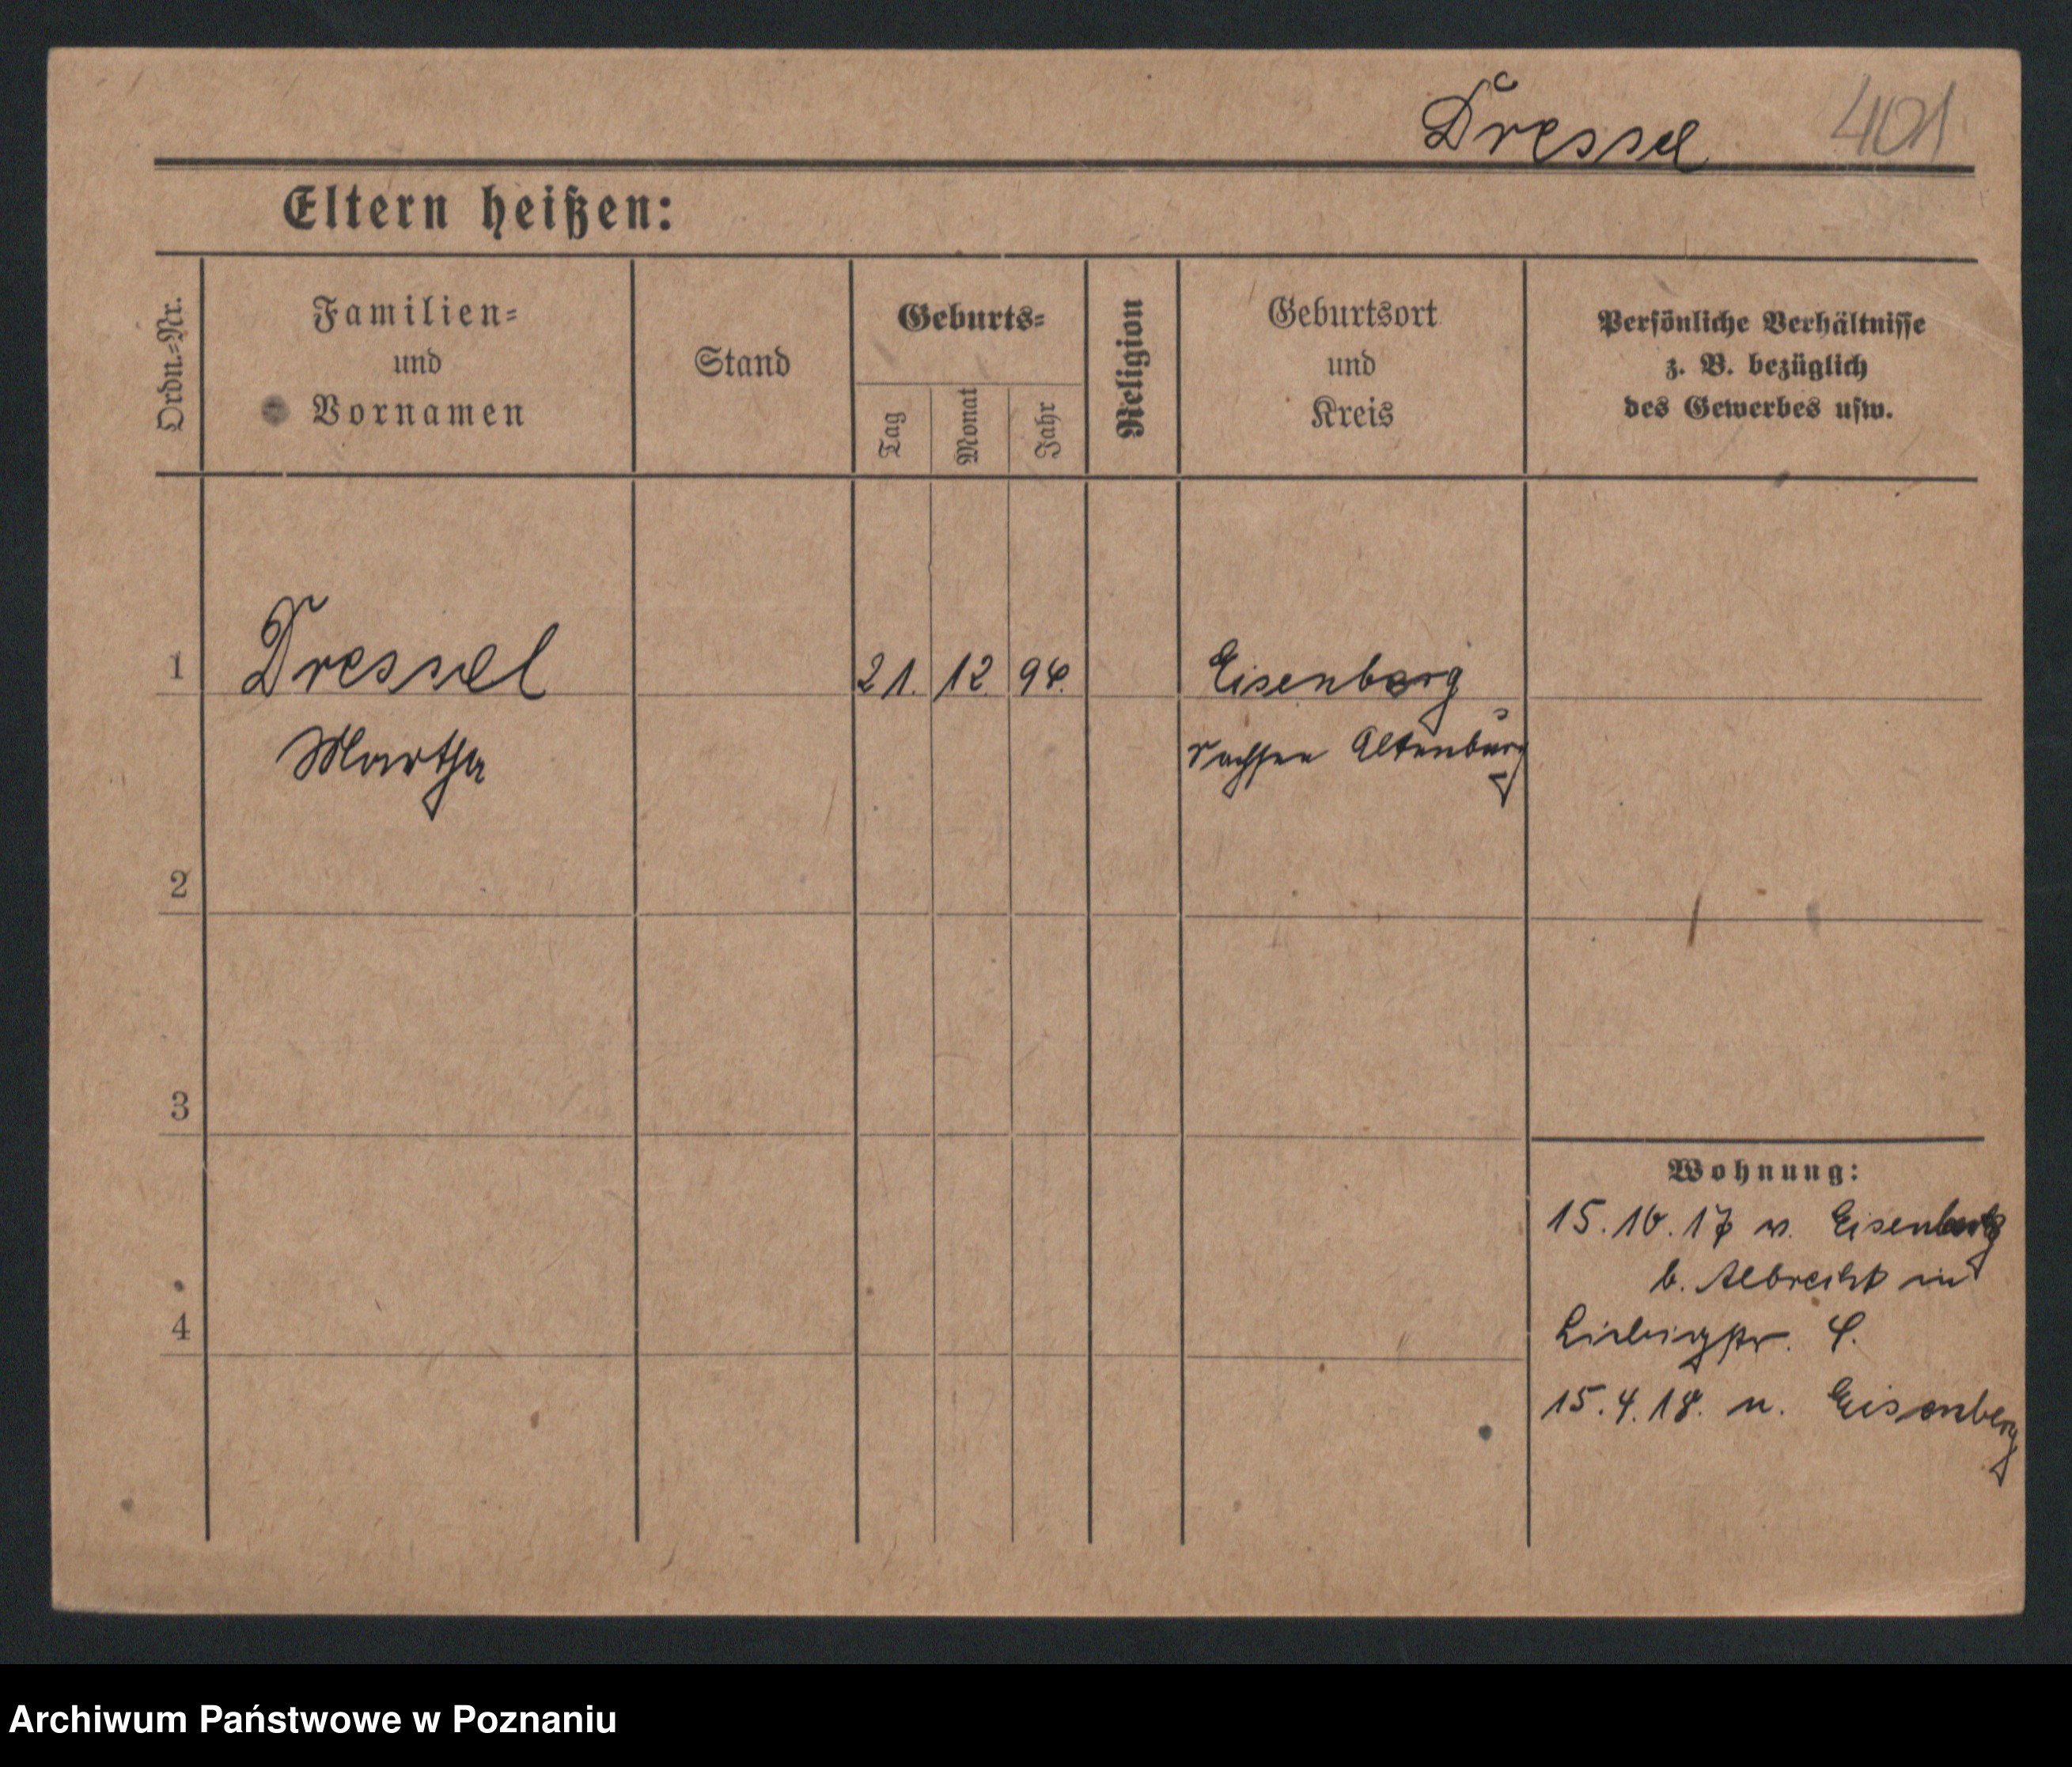 Dressel 401
Eltern heißen:
Ordn.=Nr.
Familien=
und
Vornamen
Stand
Geburts=
Tag
Monat
Jahr
Religion
Geburtsort
und
Kreis
Persönliche Verhältnisse
z. B. bezüglich
des Gewerbes usw.
1 Dressel 21. 12. 94. Eisenberg
Martha Sachsen Altenburg
2
3
4
Wohnung:
15.10.17 v. Eisenberg
b. Albrecht in
Liebigstr. 4.
15.4.18. n. Eisenberg
Archiwum Państwowe w Poznaniu